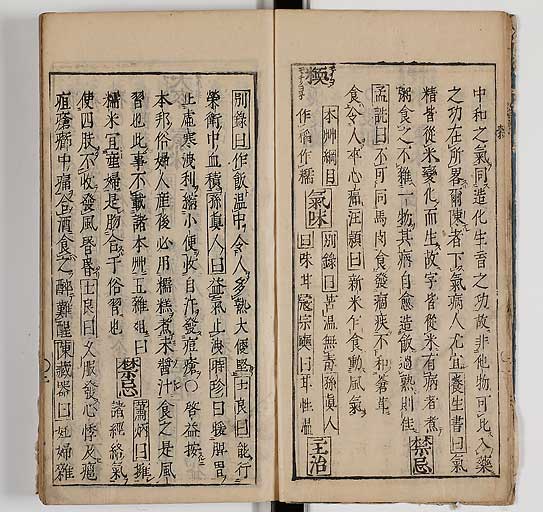 中和之氣同造化生育之功故非他物可比入藥
之功在所畧爾陳者下氣病人尤宜養生書曰氣
精皆從米變化而生故字皆從米有病者煮
粥食之不雜一物其病自愈造飯過熟則佳 禁忌
孟詵曰不可同馬肉食發痼疾不和蒼耳
食令人卒心痛汪頴曰新米乍食動風氣
糯 本艸綱目 氣味 別錄曰苦温無毒孫真人
作稬作糯 曰味甘寇宗奭曰甘性温 主治
別錄曰作飯温中令人多熱大便堅士良曰能行
榮衛中血積孫真人曰益氣止洩時珍曰暖脾胃
止虛寒洩利縮小便收自汗發痘瘡○啓益按
本邦俗婦人産後必用糯糕煮未醬汁食之是風
習也此事不載諸本艸五雜俎曰
糯米宜產婦是脗合于俗習也 禁忌 蕭炳曰擁
諸經絡氣
使四肢不收發風昏昏士良曰久服發心悸及癰
疽瘡癤中痛合酒食之醉難醒陳藏器曰妊婦雜